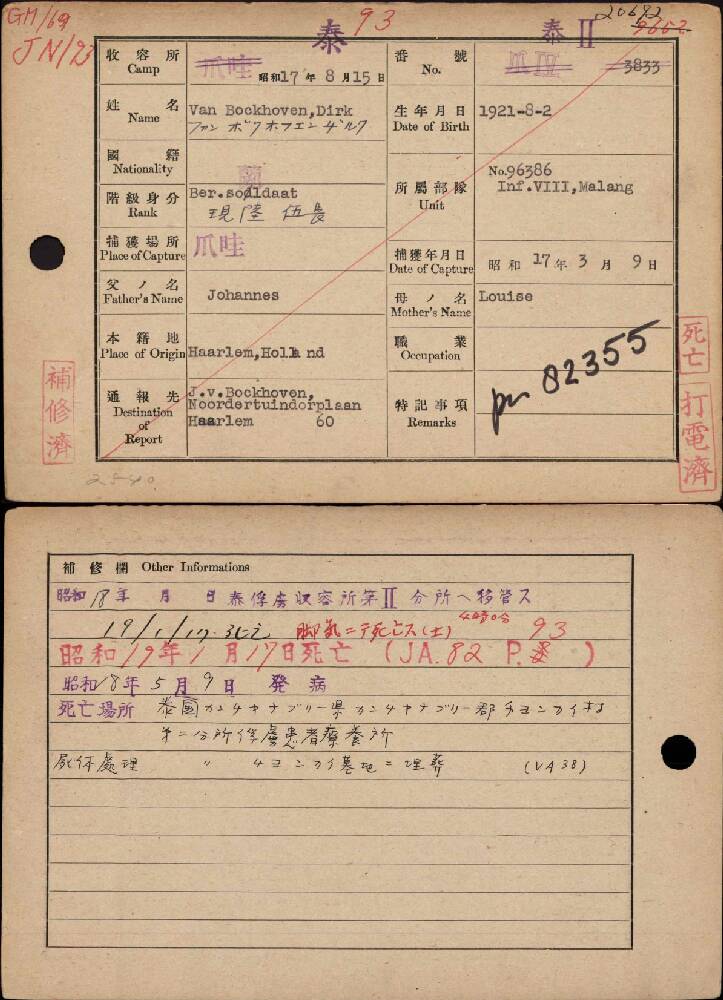 GM/69
JN/93
泰
93
泰 II
20692
9662
收容所 Camp 爪哇 昭和17年8月15日
番號 No. 爪 IV 3833
姓名 Name Van Bockhoven,Dirk
ファン ボクホフエン ヂルク
生年月日 Date of Birth 1921-8-2
國籍 Nationality 蘭
階級身分 Rank Ber.soldaat
現陸 伍長
所屬部隊 Unit No.96386
Inf.VIII,Malang
捕獲場所 Place of Capture 爪哇
捕獲年月日 Date of Capture 昭和 17年 3月 9日
父ノ名 Father's Name Johannes
母ノ名 Mother's Name Louise
本籍地 Place of Origin Haarlem,Holland
職業 Occupation
通報先 Destination of Report J.v.Bockhoven,
Noordertuindorplaan
Haarlem 60
特記事項 Remarks
pm 82355
補修濟
死亡
打電濟
2540
補修欄 Other Informations
昭和18年 月 日 泰俘虜収容所第II分所ヘ移管ス
19/1/17 脚気ニテ死亡ス(土) 93
昭和19年1月17日死亡 (JA.82 P. )
昭和18年5月9日 発病
死亡場所 泰國カンチヤナブリー県カンチヤナブリー郡チヨンカイ村
第二分所俘虜患者療養所
屍体處理 〃 チヨンカイ墓地ニ埋葬 (VA38)